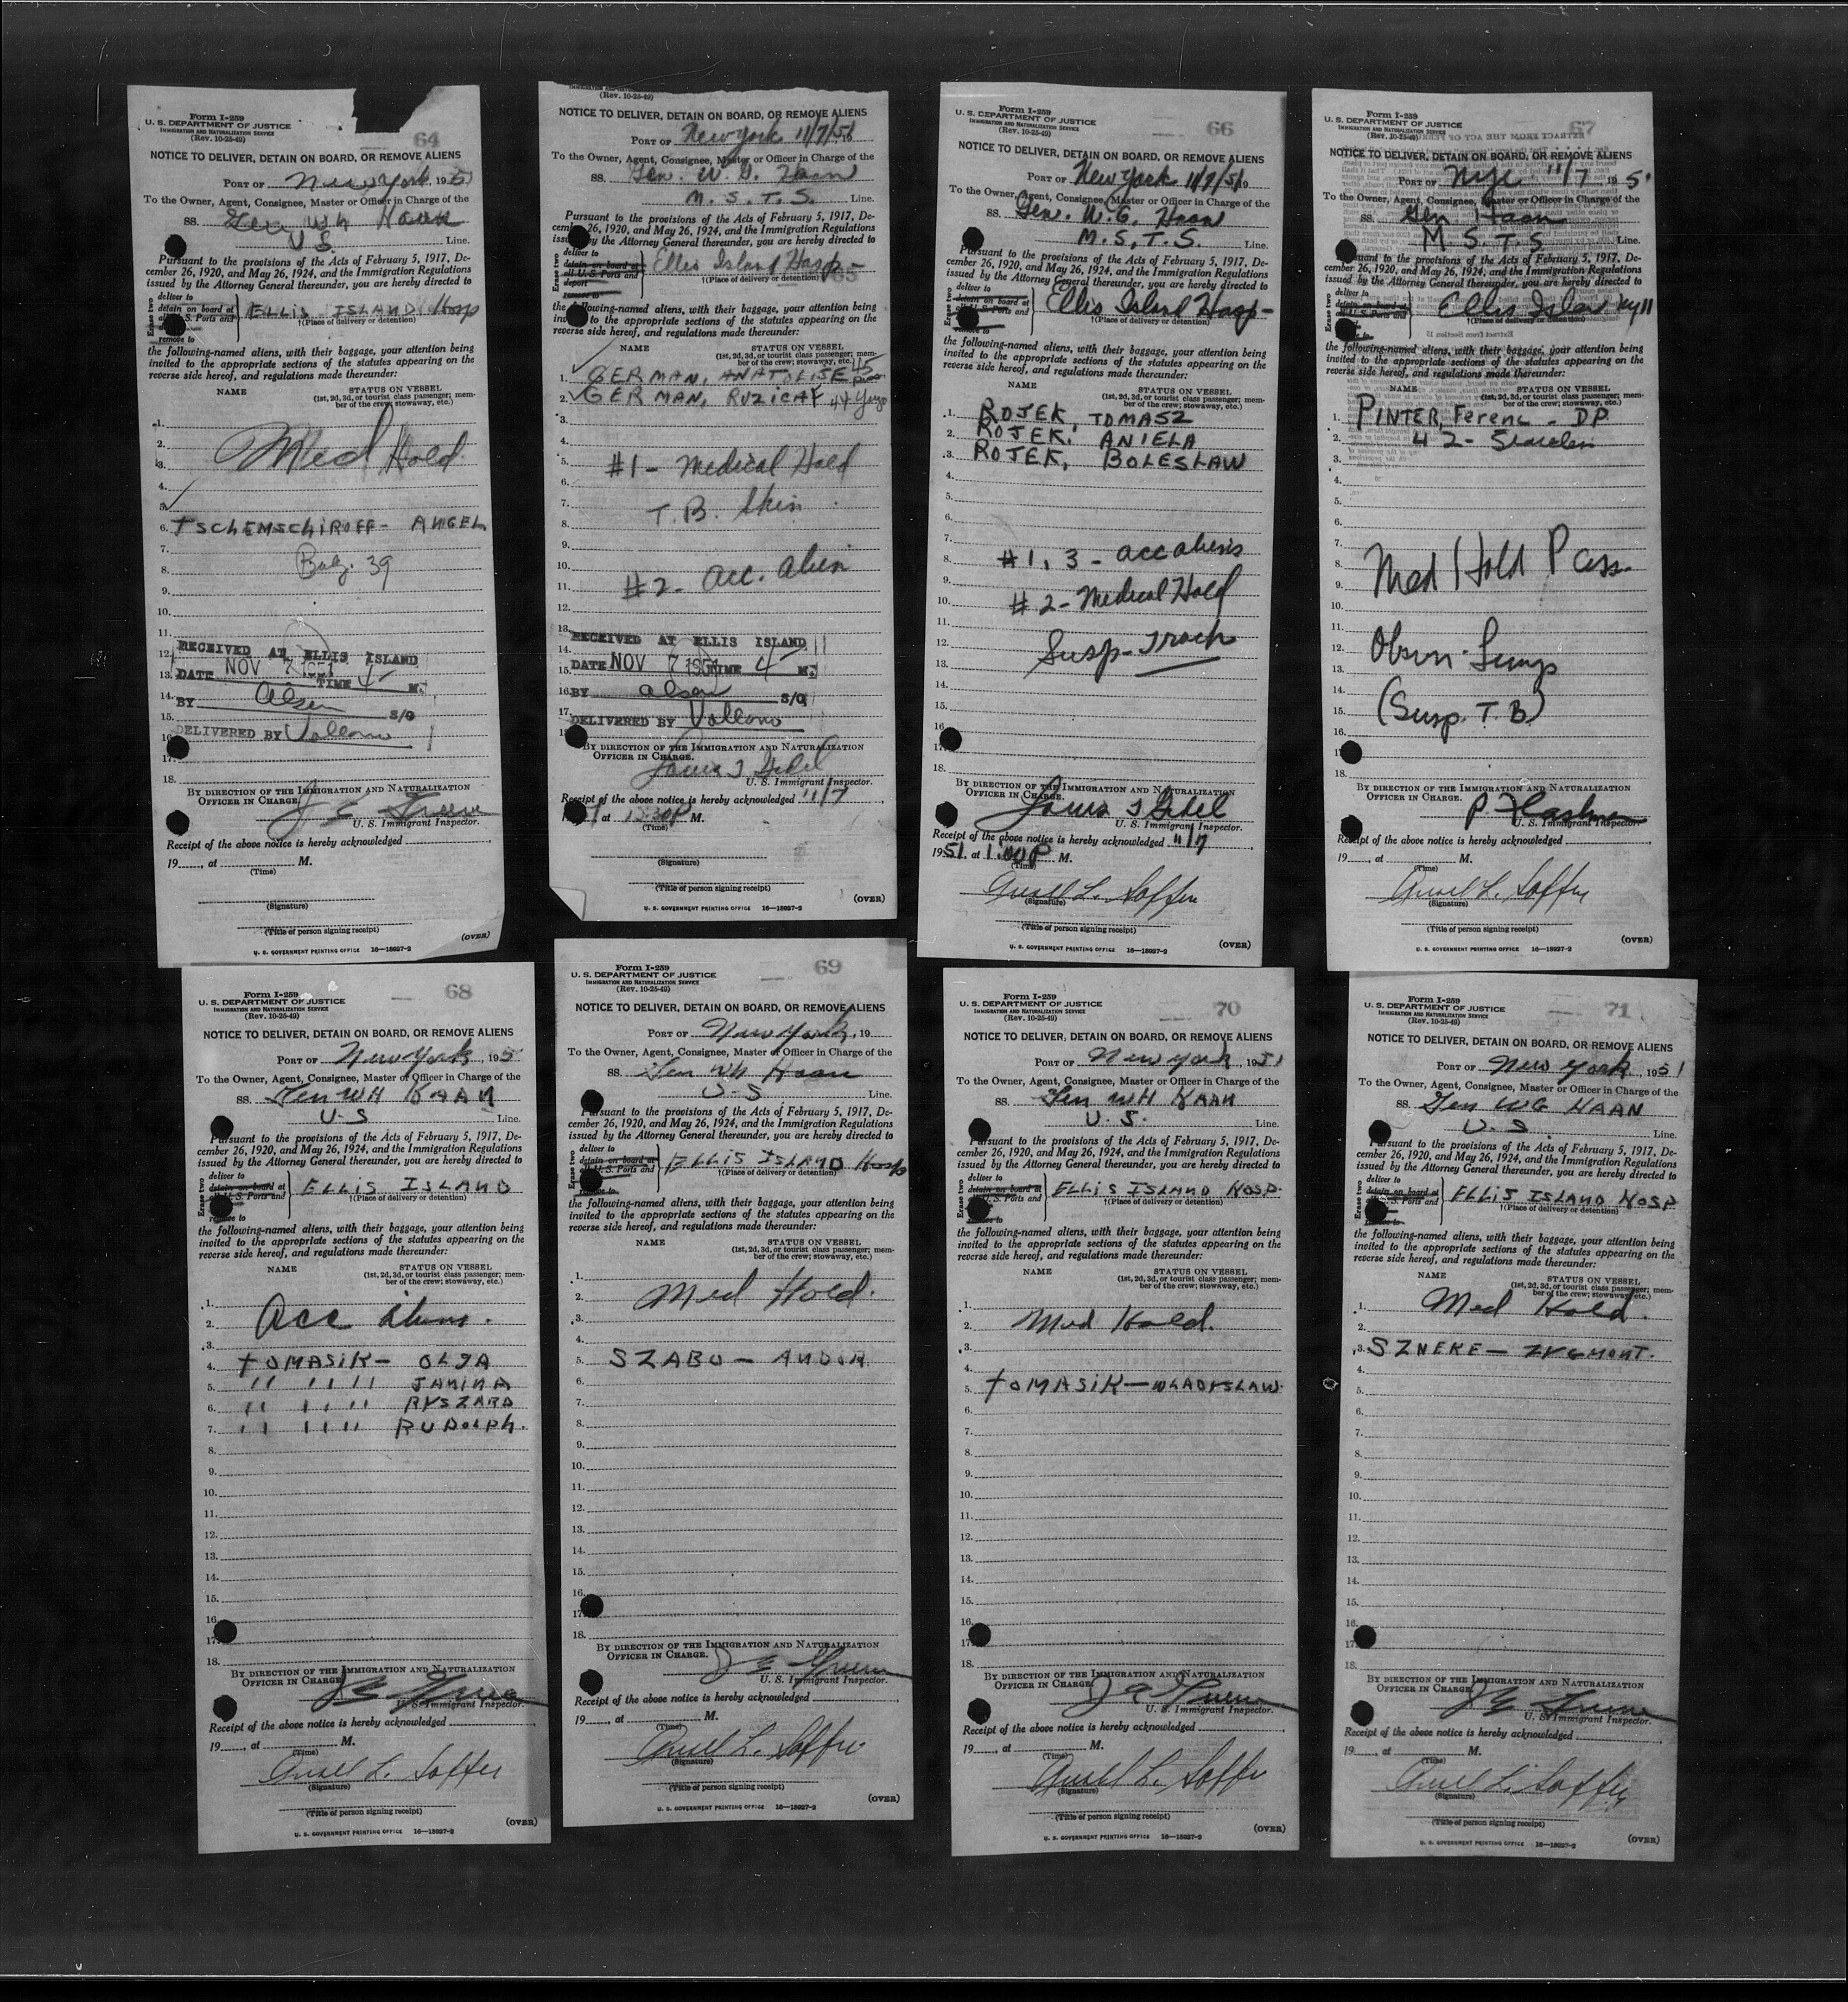 Form I-259
U. S. DEPARTMENT OF JUSTICE
IMMIGRATION AND NATURALIZATION SERVICE
(Rev. 10-25-49)
64
NOTICE TO DELIVER, DETAIN ON BOARD, OR REMOVE ALIENS
PORT OF New York, 1951
To the Owner, Agent, Consignee, Master or Officer in Charge of the
SS. Gen WH Haan
U S Line.
Pursuant to the provisions of the Acts of February 5, 1917, De-
cember 26, 1920, and May 26, 1924, and the Immigration Regulations
issued by the Attorney General thereunder, you are hereby directed to
deliver to
detain on board at
S. Ports and
remove to
Erase two
ELLIS ISLAND Hosp
†(Place of delivery or detention)
the following-named aliens, with their baggage, your attention being
invited to the appropriate sections of the statutes appearing on the
reverse side hereof, and regulations made thereunder:
NAME STATUS ON VESSEL
(1st, 2d, 3d, or tourist class passenger; mem-
ber of the crew; stowaway, etc.)
1.
2. Med Hold
3.
4.
5.
6. TSCHEMSCHIROFF- ANGEL
7.
8. Bulg. 39
9.
10.
11.
12. RECEIVED AT ELLIS ISLAND
13. DATE NOV 7 1951 TIME 4 M.
14. BY Olsen S/O
15.
16. DELIVERED BY Vallono
17.
18.
BY DIRECTION OF THE IMMIGRATION AND NATURALIZATION
OFFICER IN CHARGE.
U. S. Immigrant Inspector.
Receipt of the above notice is hereby acknowledged
19, at M.
(Time)
(Signature)
(Title of person signing receipt)
(OVER)
U. S. GOVERNMENT PRINTING OFFICE 16—18927-2
IMMIGRATION AND NATURALIZATION SERVICE
(Rev. 10-25-49)
NOTICE TO DELIVER, DETAIN ON BOARD, OR REMOVE ALIENS
PORT OF New York 11/7/51, 19
To the Owner, Agent, Consignee, Master or Officer in Charge of the
SS. Gen. W. G. Haan
M. S. T. S. Line.
Pursuant to the provisions of the Acts of February 5, 1917, De-
cember 26, 1920, and May 26, 1924, and the Immigration Regulations
issued by the Attorney General thereunder, you are hereby directed to
deliver to
detain on board at
all U. S. Ports and
deport
remove to
Erase two
Ellis Island Hosp-
†(Place of delivery or detention)
65
the following-named aliens, with their baggage, your attention being
invited to the appropriate sections of the statutes appearing on the
reverse side hereof, and regulations made thereunder:
NAME STATUS ON VESSEL
(1st, 2d, 3d, or tourist class passenger; mem-
ber of the crew; stowaway, etc.)
1. GERMAN, ANATOLIJE 45
2. GERMAN, RUZICA 44 Yugo
3.
4.
5. #1- Medical Hold
6.
7. T.B. Skin
8.
9.
10.
11. #2- Acc. alien
12.
13.
14. RECEIVED AT ELLIS ISLAND
15. DATE NOV 7 1951 TIME 4 M.
16. BY Olsen S/O
17. DELIVERED BY Vallono
18.
BY DIRECTION OF THE IMMIGRATION AND NATURALIZATION
OFFICER IN CHARGE.
U. S. Immigrant Inspector.
Receipt of the above notice is hereby acknowledged 11/7
at 12:30P M.
(Time)
(Signature)
(Title of person signing receipt)
(OVER)
U. S. GOVERNMENT PRINTING OFFICE 16—18927-2
Form I-259
U. S. DEPARTMENT OF JUSTICE
IMMIGRATION AND NATURALIZATION SERVICE
(Rev. 10-25-49)
66
NOTICE TO DELIVER, DETAIN ON BOARD, OR REMOVE ALIENS
PORT OF New York 11/7/51, 19
To the Owner, Agent, Consignee, Master or Officer in Charge of the
SS. Gen. W. G. Haan
M. S. T. S. Line.
Pursuant to the provisions of the Acts of February 5, 1917, De-
cember 26, 1920, and May 26, 1924, and the Immigration Regulations
issued by the Attorney General thereunder, you are hereby directed to
deliver to
detain on board at
S. Ports and
Erase two
Ellis Island Hosp-
†(Place of delivery or detention)
the following-named aliens, with their baggage, your attention being
invited to the appropriate sections of the statutes appearing on the
reverse side hereof, and regulations made thereunder:
NAME STATUS ON VESSEL
(1st, 2d, 3d, or tourist class passenger; mem-
ber of the crew; stowaway, etc.)
1. ROJEK, TOMASZ
2. ROJEK, ANIELA
3. ROJEK, BOLESLAW
4.
5.
6.
7.
8. #1, 3- acc aliens
9.
10. #2- Medical Hold
11.
12. Susp- Trach
13.
14.
15.
16.
17.
18.
BY DIRECTION OF THE IMMIGRATION AND NATURALIZATION
OFFICER IN CHARGE.
U. S. Immigrant Inspector.
Receipt of the above notice is hereby acknowledged 11/7
1951, at 1:00P M.
(Time)
Ansel L. Soffer
(Signature)
(Title of person signing receipt)
(OVER)
U. S. GOVERNMENT PRINTING OFFICE 16—18927-2
Form I-259
U. S. DEPARTMENT OF JUSTICE
IMMIGRATION AND NATURALIZATION SERVICE
(Rev. 10-25-49)
67
NOTICE TO DELIVER, DETAIN ON BOARD, OR REMOVE ALIENS
PORT OF NYC 11/7, 195
To the Owner, Agent, Consignee, Master or Officer in Charge of the
SS. Gen Haan
M S T S Line.
Pursuant to the provisions of the Acts of February 5, 1917, De-
cember 26, 1920, and May 26, 1924, and the Immigration Regulations
issued by the Attorney General thereunder, you are hereby directed to
deliver to
detain on board at
U.S. Ports and
remove to
Erase two
Ellis Island
†(Place of delivery or detention)
the following-named aliens, with their baggage, your attention being
invited to the appropriate sections of the statutes appearing on the
reverse side hereof, and regulations made thereunder:
NAME STATUS ON VESSEL
(1st, 2d, 3d, or tourist class passenger; mem-
ber of the crew; stowaway, etc.)
1. PINTER, Ferenc - DP
2. 42-
3.
4.
5.
6.
7.
8. Med Hold Pass.
9.
10.
11.
12. Observ. Lungs
13.
14.
15. (Susp. T.B)
16.
17.
18.
BY DIRECTION OF THE IMMIGRATION AND NATURALIZATION
OFFICER IN CHARGE.
U. S. Immigrant Inspector.
Receipt of the above notice is hereby acknowledged
19, at M.
(Time)
Ansel L. Soffer
(Signature)
(Title of person signing receipt)
(OVER)
U. S. GOVERNMENT PRINTING OFFICE 16—18927-2
Form I-259
U. S. DEPARTMENT OF JUSTICE
IMMIGRATION AND NATURALIZATION SERVICE
(Rev. 10-25-49)
68
NOTICE TO DELIVER, DETAIN ON BOARD, OR REMOVE ALIENS
PORT OF New York, 195
To the Owner, Agent, Consignee, Master or Officer in Charge of the
SS. Gen WH KAAN
U-S Line.
Pursuant to the provisions of the Acts of February 5, 1917, De-
cember 26, 1920, and May 26, 1924, and the Immigration Regulations
issued by the Attorney General thereunder, you are hereby directed to
deliver to
detain on board at
U.S. Ports and
remove to
Erase two
ELLIS ISLAND
†(Place of delivery or detention)
the following-named aliens, with their baggage, your attention being
invited to the appropriate sections of the statutes appearing on the
reverse side hereof, and regulations made thereunder:
NAME STATUS ON VESSEL
(1st, 2d, 3d, or tourist class passenger; mem-
ber of the crew; stowaway, etc.)
1.
2. Acc aliens.
3.
4. TOMASIK- OLGA
5. " " " " JANINA
6. " " " " RYSZARD
7. " " " " RUDOLPH.
8.
9.
10.
11.
12.
13.
14.
15.
16.
17.
18.
BY DIRECTION OF THE IMMIGRATION AND NATURALIZATION
OFFICER IN CHARGE.
U. S. Immigrant Inspector.
Receipt of the above notice is hereby acknowledged
19, at M.
(Time)
Ansel L. Soffer
(Signature)
(Title of person signing receipt)
(OVER)
U. S. GOVERNMENT PRINTING OFFICE 16—18927-2
Form I-259
U. S. DEPARTMENT OF JUSTICE
IMMIGRATION AND NATURALIZATION SERVICE
(Rev. 10-25-49)
69
NOTICE TO DELIVER, DETAIN ON BOARD, OR REMOVE ALIENS
PORT OF New York, 19
To the Owner, Agent, Consignee, Master or Officer in Charge of the
SS. Gen WH Haan
U-S Line.
Pursuant to the provisions of the Acts of February 5, 1917, De-
cember 26, 1920, and May 26, 1924, and the Immigration Regulations
issued by the Attorney General thereunder, you are hereby directed to
deliver to
detain on board at
U.S. Ports and
Erase two
ELLIS ISLAND Hosp
†(Place of delivery or detention)
the following-named aliens, with their baggage, your attention being
invited to the appropriate sections of the statutes appearing on the
reverse side hereof, and regulations made thereunder:
NAME STATUS ON VESSEL
(1st, 2d, 3d, or tourist class passenger; mem-
ber of the crew; stowaway, etc.)
1.
2. Med Hold.
3.
4.
5. SZABO- ANDOR
6.
7.
8.
9.
10.
11.
12.
13.
14.
15.
16.
17.
18.
BY DIRECTION OF THE IMMIGRATION AND NATURALIZATION
OFFICER IN CHARGE.
U. S. Immigrant Inspector.
Receipt of the above notice is hereby acknowledged
19, at M.
(Time)
Ansel L. Soffer
(Signature)
(Title of person signing receipt)
(OVER)
U. S. GOVERNMENT PRINTING OFFICE 16—18927-2
Form I-259
U. S. DEPARTMENT OF JUSTICE
IMMIGRATION AND NATURALIZATION SERVICE
(Rev. 10-25-49)
70
NOTICE TO DELIVER, DETAIN ON BOARD, OR REMOVE ALIENS
PORT OF New York, 1951
To the Owner, Agent, Consignee, Master or Officer in Charge of the
SS. Gen WH KAAN
U.S. Line.
Pursuant to the provisions of the Acts of February 5, 1917, De-
cember 26, 1920, and May 26, 1924, and the Immigration Regulations
issued by the Attorney General thereunder, you are hereby directed to
deliver to
detain on board at
U.S. Ports and
Erase two
ELLIS ISLAND HOSP.
†(Place of delivery or detention)
the following-named aliens, with their baggage, your attention being
invited to the appropriate sections of the statutes appearing on the
reverse side hereof, and regulations made thereunder:
NAME STATUS ON VESSEL
(1st, 2d, 3d, or tourist class passenger; mem-
ber of the crew; stowaway, etc.)
1.
2. Med Hold.
3.
4.
5. TOMASIK-WLADYSLAW.
6.
7.
8.
9.
10.
11.
12.
13.
14.
15.
16.
17.
18.
BY DIRECTION OF THE IMMIGRATION AND NATURALIZATION
OFFICER IN CHARGE.
U. S. Immigrant Inspector.
Receipt of the above notice is hereby acknowledged
19, at M.
(Time)
Ansel L. Soffer
(Signature)
(Title of person signing receipt)
(OVER)
U. S. GOVERNMENT PRINTING OFFICE 16—18927-2
Form I-259
U. S. DEPARTMENT OF JUSTICE
IMMIGRATION AND NATURALIZATION SERVICE
(Rev. 10-25-49)
71
NOTICE TO DELIVER, DETAIN ON BOARD, OR REMOVE ALIENS
PORT OF New York, 1951
To the Owner, Agent, Consignee, Master or Officer in Charge of the
SS. Gen WG HAAN
U.S. Line.
Pursuant to the provisions of the Acts of February 5, 1917, De-
cember 26, 1920, and May 26, 1924, and the Immigration Regulations
issued by the Attorney General thereunder, you are hereby directed to
deliver to
detain on board at
U.S. Ports and
Erase two
ELLIS ISLAND HOSP
†(Place of delivery or detention)
the following-named aliens, with their baggage, your attention being
invited to the appropriate sections of the statutes appearing on the
reverse side hereof, and regulations made thereunder:
NAME STATUS ON VESSEL
(1st, 2d, 3d, or tourist class passenger; mem-
ber of the crew; stowaway, etc.)
1. Med Hold.
2.
3. SZNEKE- ZYGMONT.
4.
5.
6.
7.
8.
9.
10.
11.
12.
13.
14.
15.
16.
17.
18.
BY DIRECTION OF THE IMMIGRATION AND NATURALIZATION
OFFICER IN CHARGE.
U. S. Immigrant Inspector.
Receipt of the above notice is hereby acknowledged
19, at M.
(Time)
Ansel L. Soffer
(Signature)
(Title of person signing receipt)
(OVER)
U. S. GOVERNMENT PRINTING OFFICE 16—18927-2